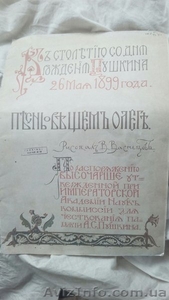 Къ столѣтію со дня
рожденія Пушкина
26 мая 1899 года.
Пѣснь о вѣщемъ Олегѣ.
Рисунки В. Васнецова
По распоряженію
Высочайше ут-
вержденной при
Императорской
Академіи Наукъ
коммиссіи для
чествованія па-
мяти А.С. Пушкина
AvizInfo.com.ua